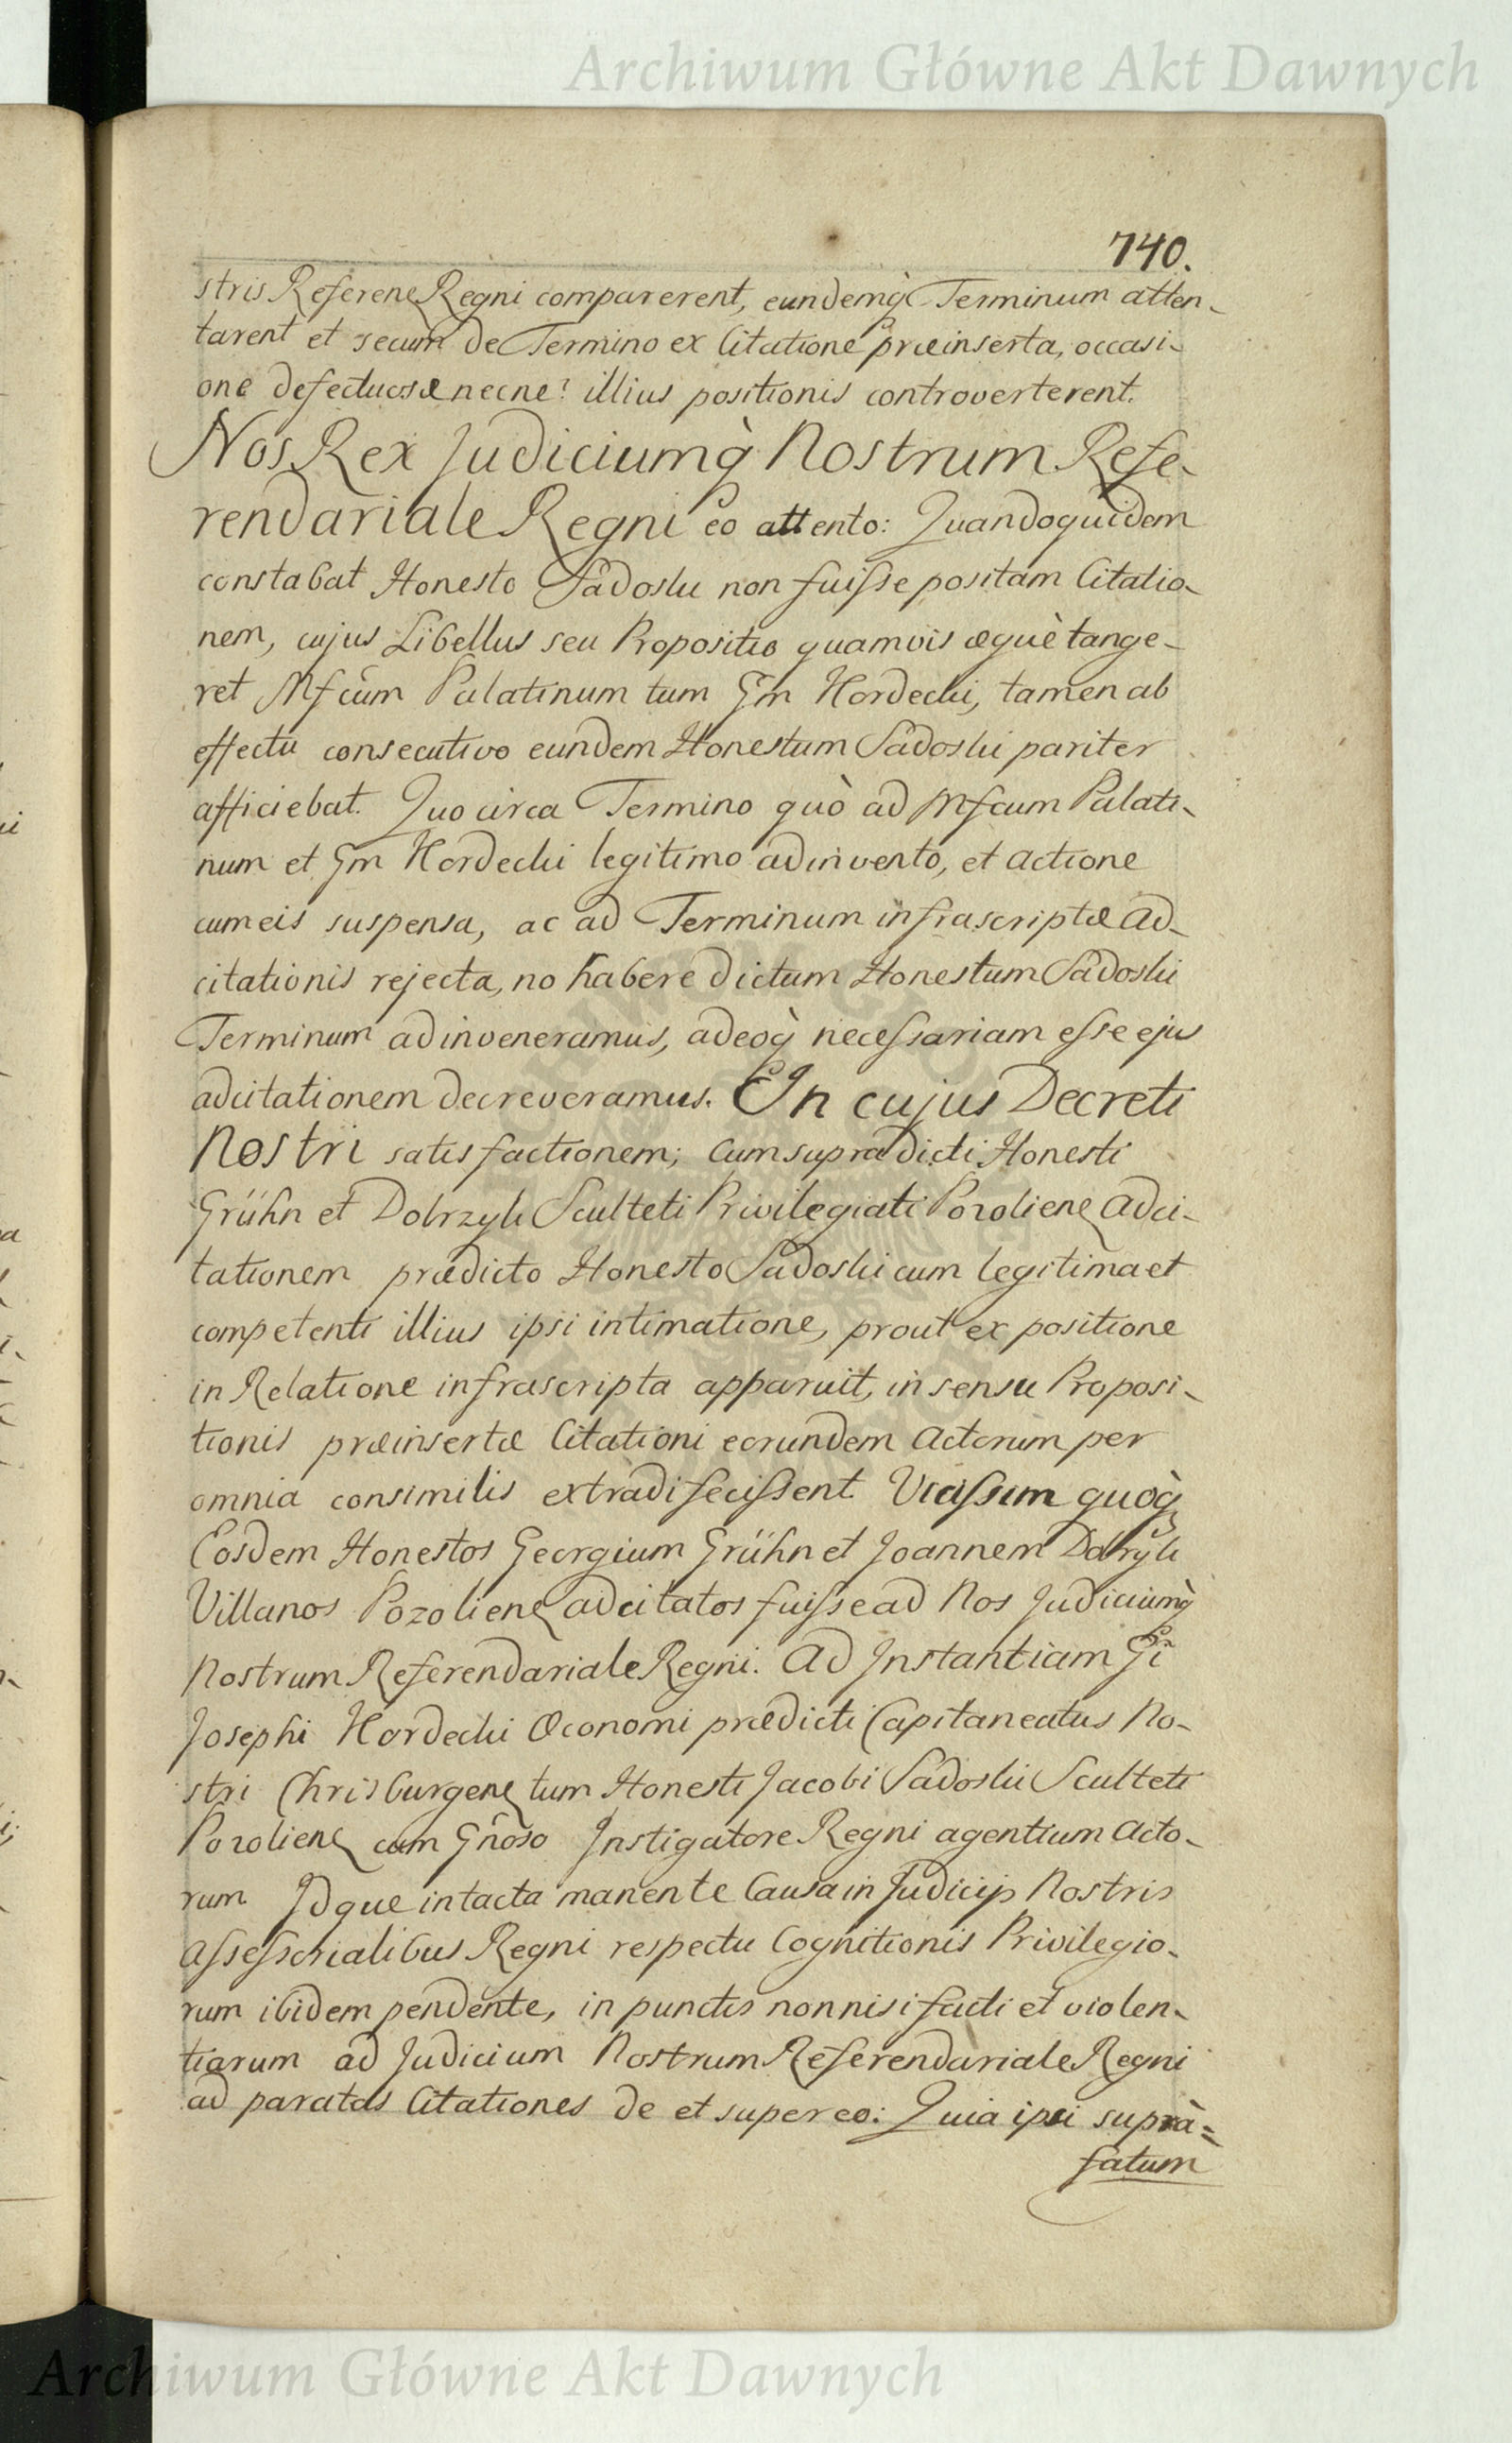 Archiwum Główne Akt Dawnych
740.
stris Referenꝫ Regni comparerent, eundemq̀ Terminum atten-
tarent et secum de Termino ex Citatione præinserta, occasi-
one defectuosæ necne? illius positionis controverterent.
Nos Rex Judiciumq̀ Nostrum Refe-
rendariale Regni eo attento: Quandoquidem
constabat Honesto Sadoski non fuisse positam Citatio-
nem, cujus Libellus seu Propositio quamvis æquè tange-
ret Mfcum Palatinum tum Gm Hordecki, tamen ab
effectu consecutivo eundem Honestum Sadoski pariter
afficiebat. Quocirca Termino quò ad Mfcum Palati-
num et Gm Hordecki legitimo adinvento, et actione
cum eis suspensa, ac ad Terminum infrascriptæ ad-
citationis rejecta, no habere dictum Honestum Sadoski
Terminum adinveneramus, adeoq̀ necessariam esse ejus
adcitationem decreveramus. In cujus Decreti
Nostri satisfactionem; cum supradicti Honesti
Grühn et Dobrzyk Sculteti Privilegiati Pozolienꝫ adci-
tationem prædicto Honesto Sadoski cum legitima et
competenti illius ipsi intimatione, prout ex positione
in Relatione infrascripta apparuit, in sensu Proposi-
tionis præinsertæ Citationi eorundem Actorum per
omnia consimilis extradi fecissent. Vicissim quoq̀
Eosdem Honestos Georgium Grühn et Joannem Dobrzyk
Villanos Pozolienꝫ adcitatos fuisse ad Nos Judiciumq̀
Nostrum Referendariale Regni. Ad Instantiam Gi
Josephi Hordecki Œconomi prædicti Capitaneatus No-
stri Chrisburgenꝫ tum Honesti Jacobi Sadoski Sculteti
Pozolienꝫ cum Gñoso Instigatore Regni agentium Acto-
rum Idque intacta manente Causa in Judicijs Nostris
Assessorialibus Regni respectu Cognitionis Privilegio-
rum ibidem pendente, in punctis nonnisi facti et violen-
tiarum ad Judicium Nostrum Referendariale Regni
ad paratas Citationes de et super eo: Quia ipsi suprà=
fatum
Archiwum Główne Akt Dawnych